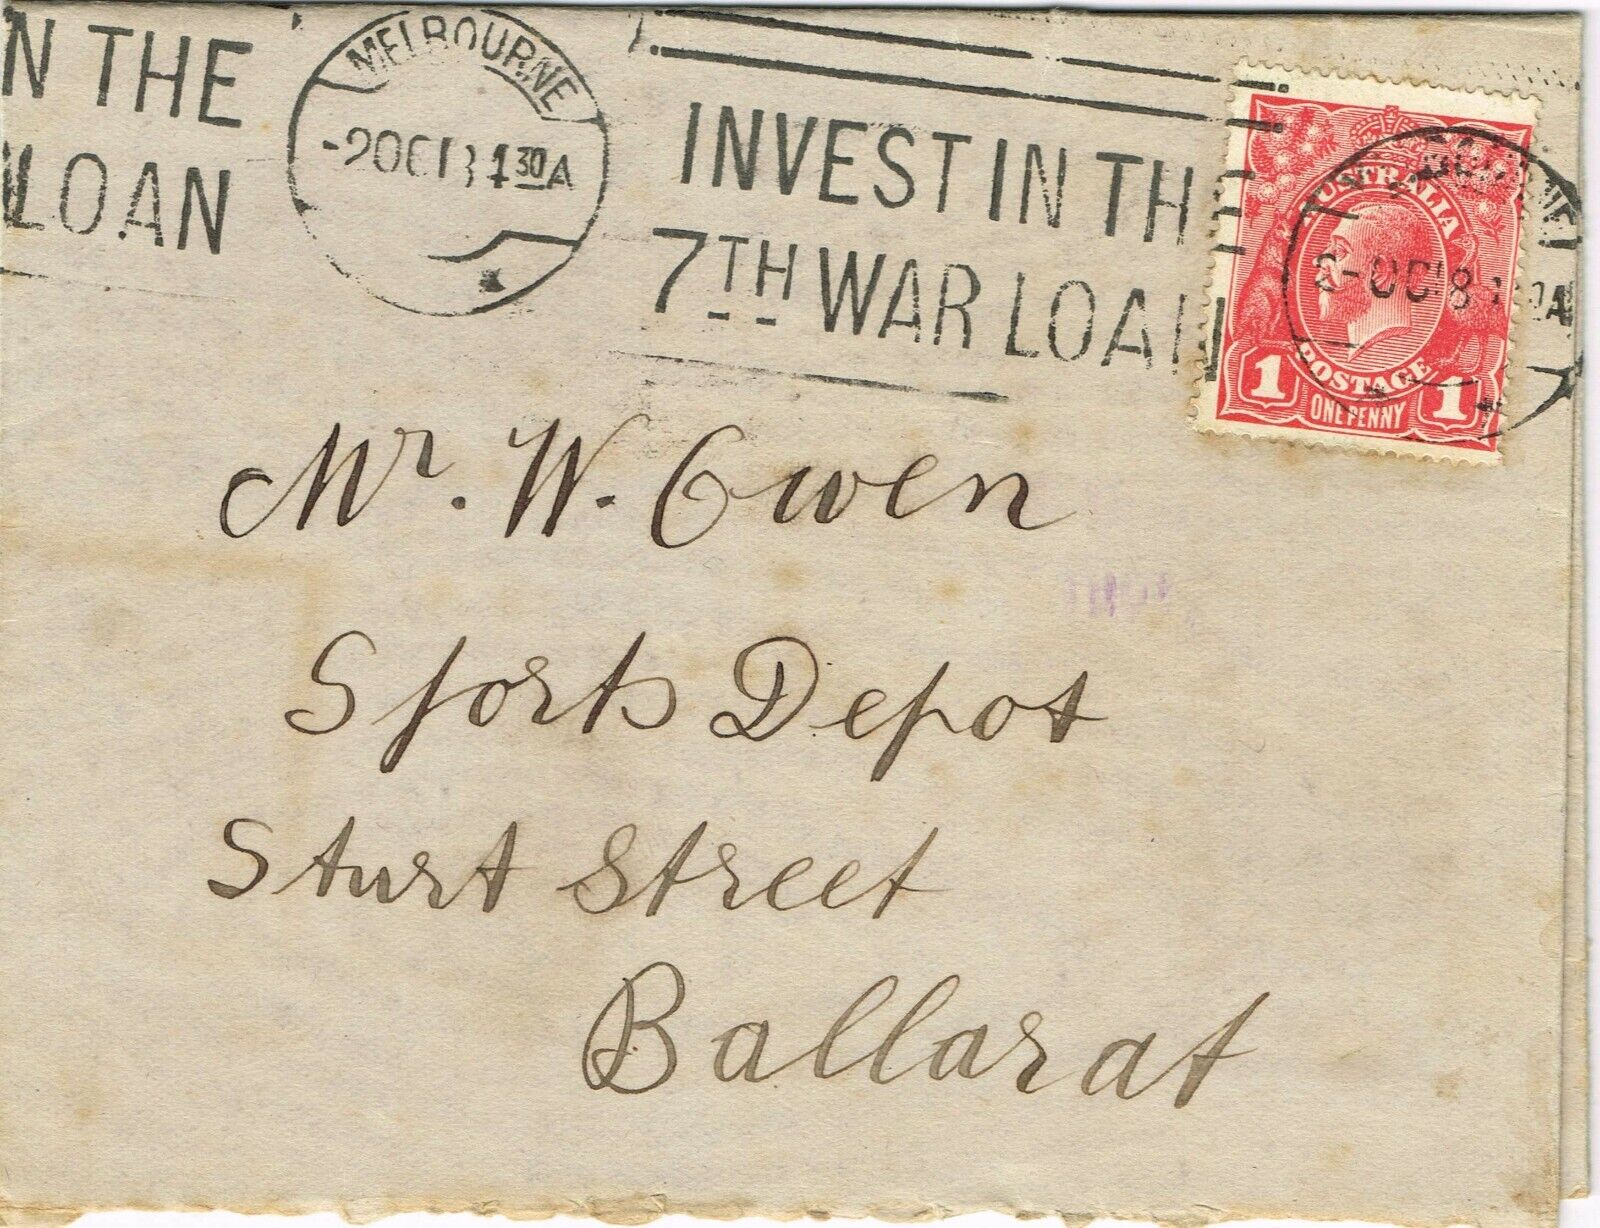 N THE
LOAN
MELBOURNE
-2OC18 130A
INVEST IN TH
7TH WAR LOAN
AUSTRALIA
2-OC18
POSTAGE
1 ONE PENNY 1
Mr. W. Owen
Sports Depot
Sturt Street
Ballarat